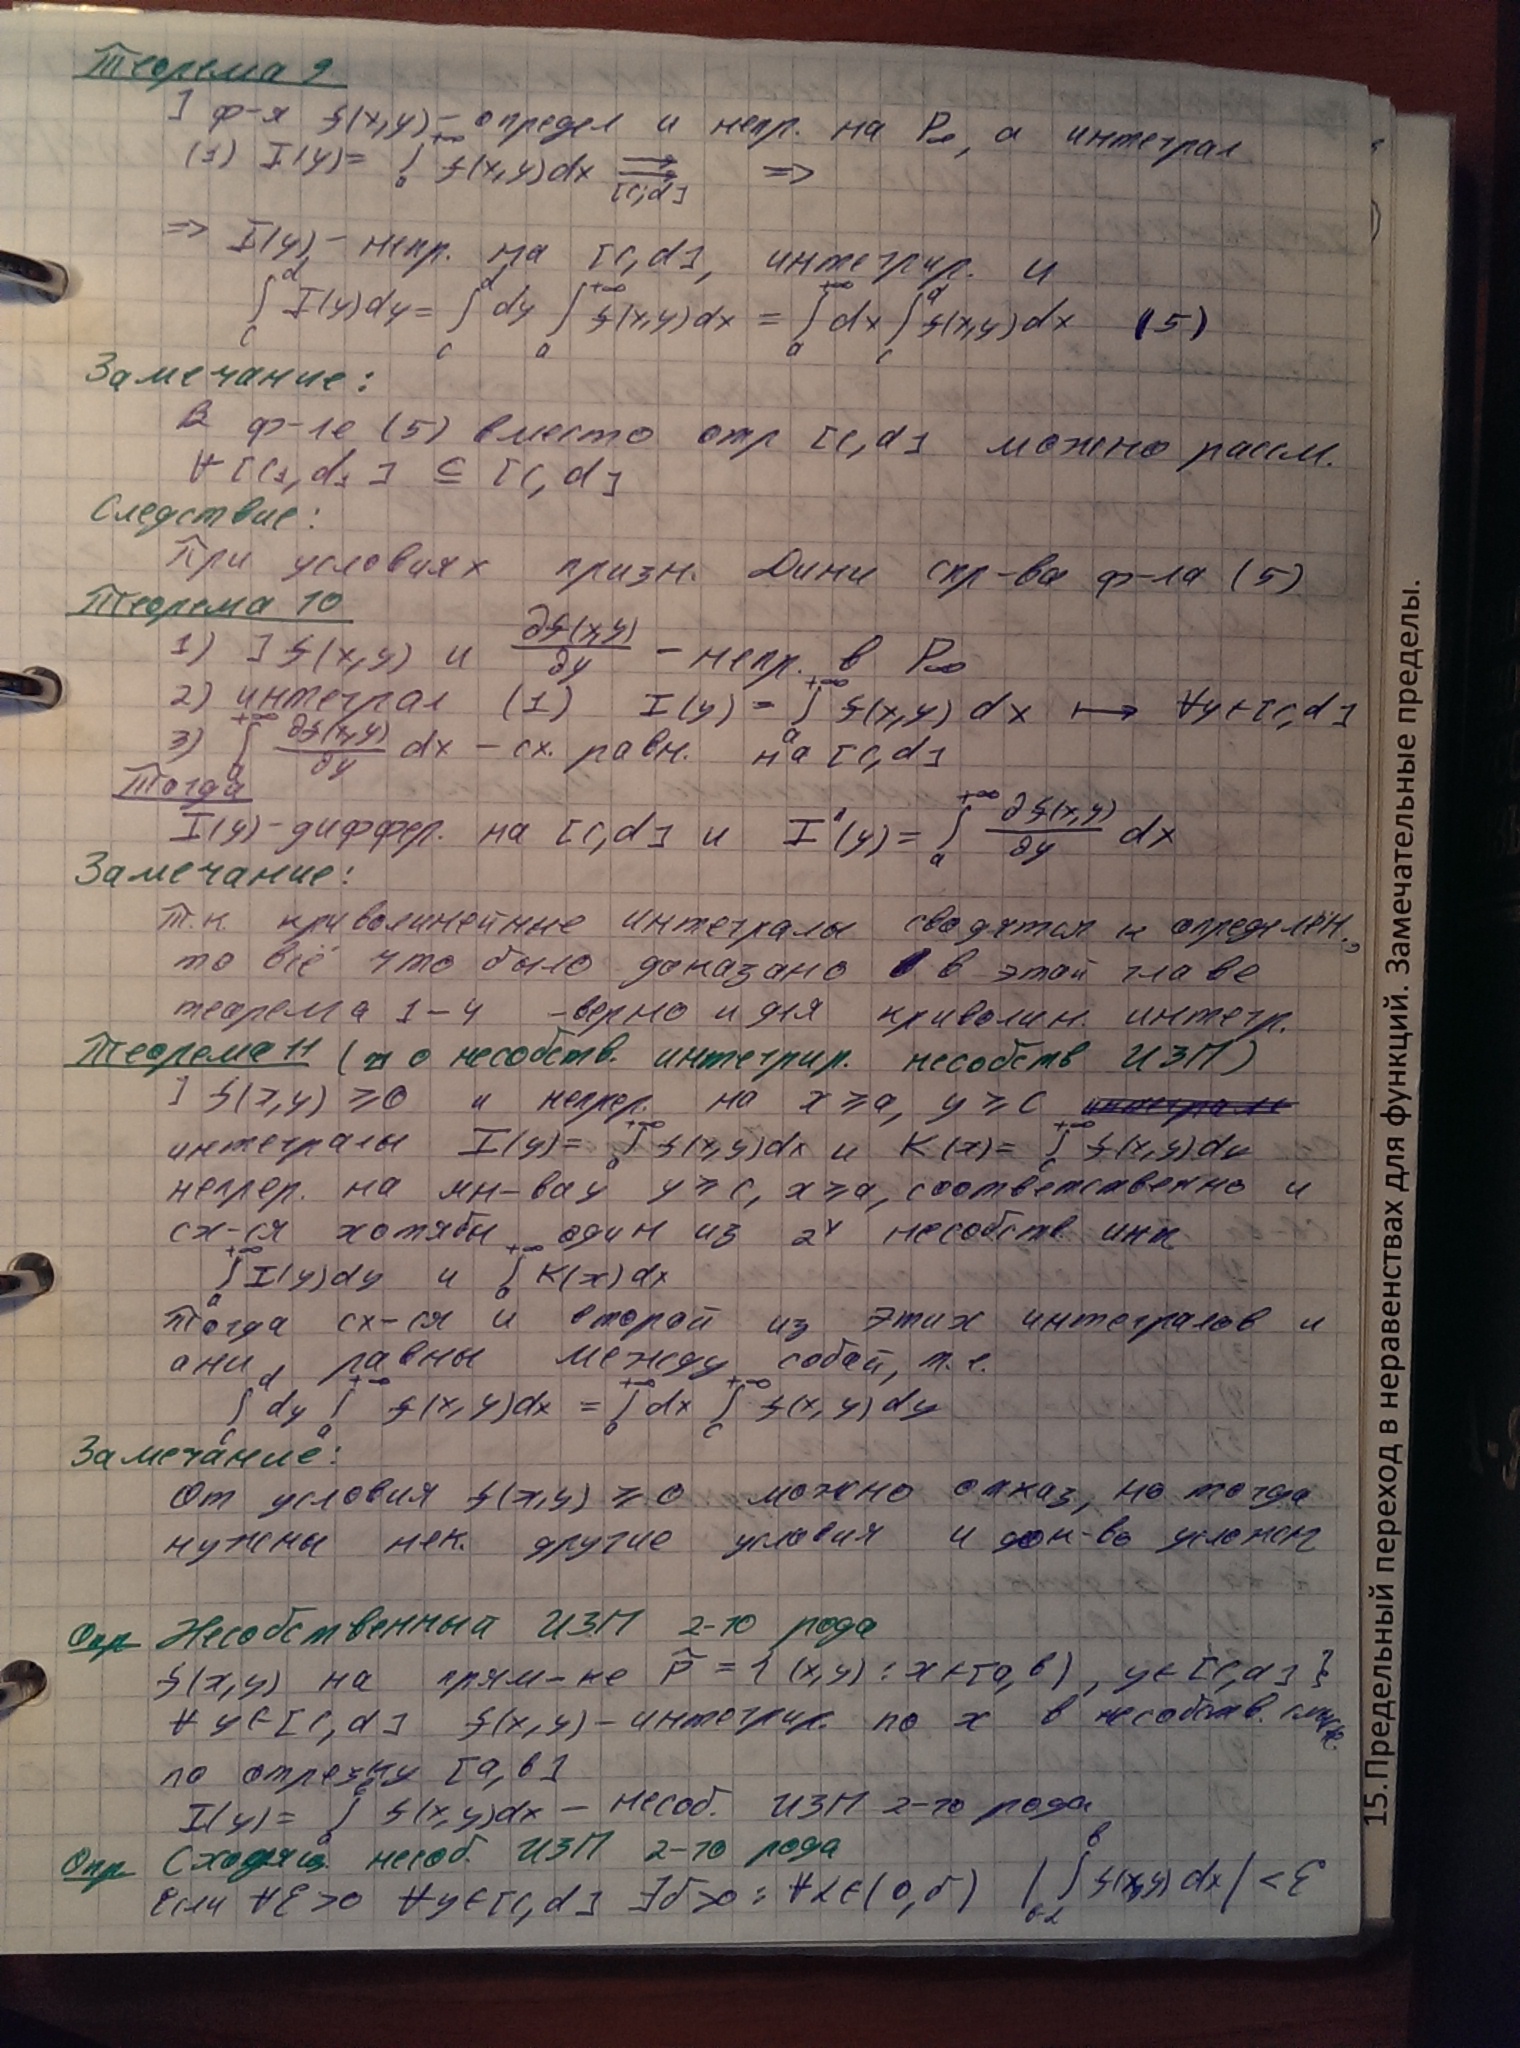 Теорема 9
] ф-я f(x,y) – определ и непр. на P∞, а интеграл
(1) I(y) = ∫_a^{+∞} f(x,y)dx ⇉_{[c,d]} =>
=> I(y) – непр. на [c,d], интегрир. и
∫_c^d I(y)dy = ∫_c^d dy ∫_a^{+∞} f(x,y)dx = ∫_a^{+∞} dx ∫_c^d f(x,y)dx (5)
Замечание:
В ф-ле (5) вместо отр [c,d] можно рассм.
∀ [c₁,d₁] ⊆ [c,d]
Следствие:
При условиях призн. Дини спр-ва ф-ла (5)
Теорема 10
1) ] f(x,y) и ∂f(x,y)/∂y – непр. в P∞
2) интеграл (1) I(y) = ∫_a^{+∞} f(x,y) dx ↦ ∀y∈[c,d]
3) ∫_a^{+∞} ∂f(x,y)/∂y dx – сх. равн. на [c,d]
Тогда
I(y) – диффер. на [c,d] и I'(y) = ∫_a^{+∞} ∂f(x,y)/∂y dx
Замечание:
Т.к. криволинейные интегралы сводятся к определён.,
то всё что было доказано в этой главе
теорема 1–4 – верно и для криволин. интегр.
Теорема 11 (о несобств. интегрир. несобств ИЗП)
] f(x,y) ≥ 0 и непрер. на x ≥ a, y ≥ c
интегралы I(y) = ∫_a^{+∞} f(x,y)dx и K(x) = ∫_c^{+∞} f(x,y)dy
непрер. на мн-вах y ≥ c, x ≥ a, соответственно и
сх-ся хотябы один из 2х несобств инт
∫_a^{+∞} I(y)dy и ∫_a^{+∞} K(x)dx
Тогда сх-ся и второй из этих интегралов и
они равны между собой, т.е.
∫_c^d dy ∫_a^{+∞} f(x,y)dx = ∫_a^{+∞} dx ∫_c^{+∞} f(x,y)dy
Замечание:
От условия f(x,y) ≥ 0 можно отказ, но тогда
нужны нек. другие условия и док-во усложн
Опр Несобственный ИЗП 2-го рода
f(x,y) на прям-ке P̃ = {(x,y): x∈[a,b), y∈[c,d]}
∀ y∈[c,d] f(x,y) – интегрир. по x в несобств. смысле.
по отрезку [a,b]
I(y) = ∫_a^b f(x,y)dx – несоб. ИЗП 2-го рода
Опр Сходящ. несоб. ИЗП 2-го рода
если ∀ε>0 ∀y∈[c,d] ∃δ>0: ∀α∈(0,δ) |∫_{b-α}^b f(x,y)dx| < ε
15.Предельный переход в неравенствах для функций. Замечательные пределы.